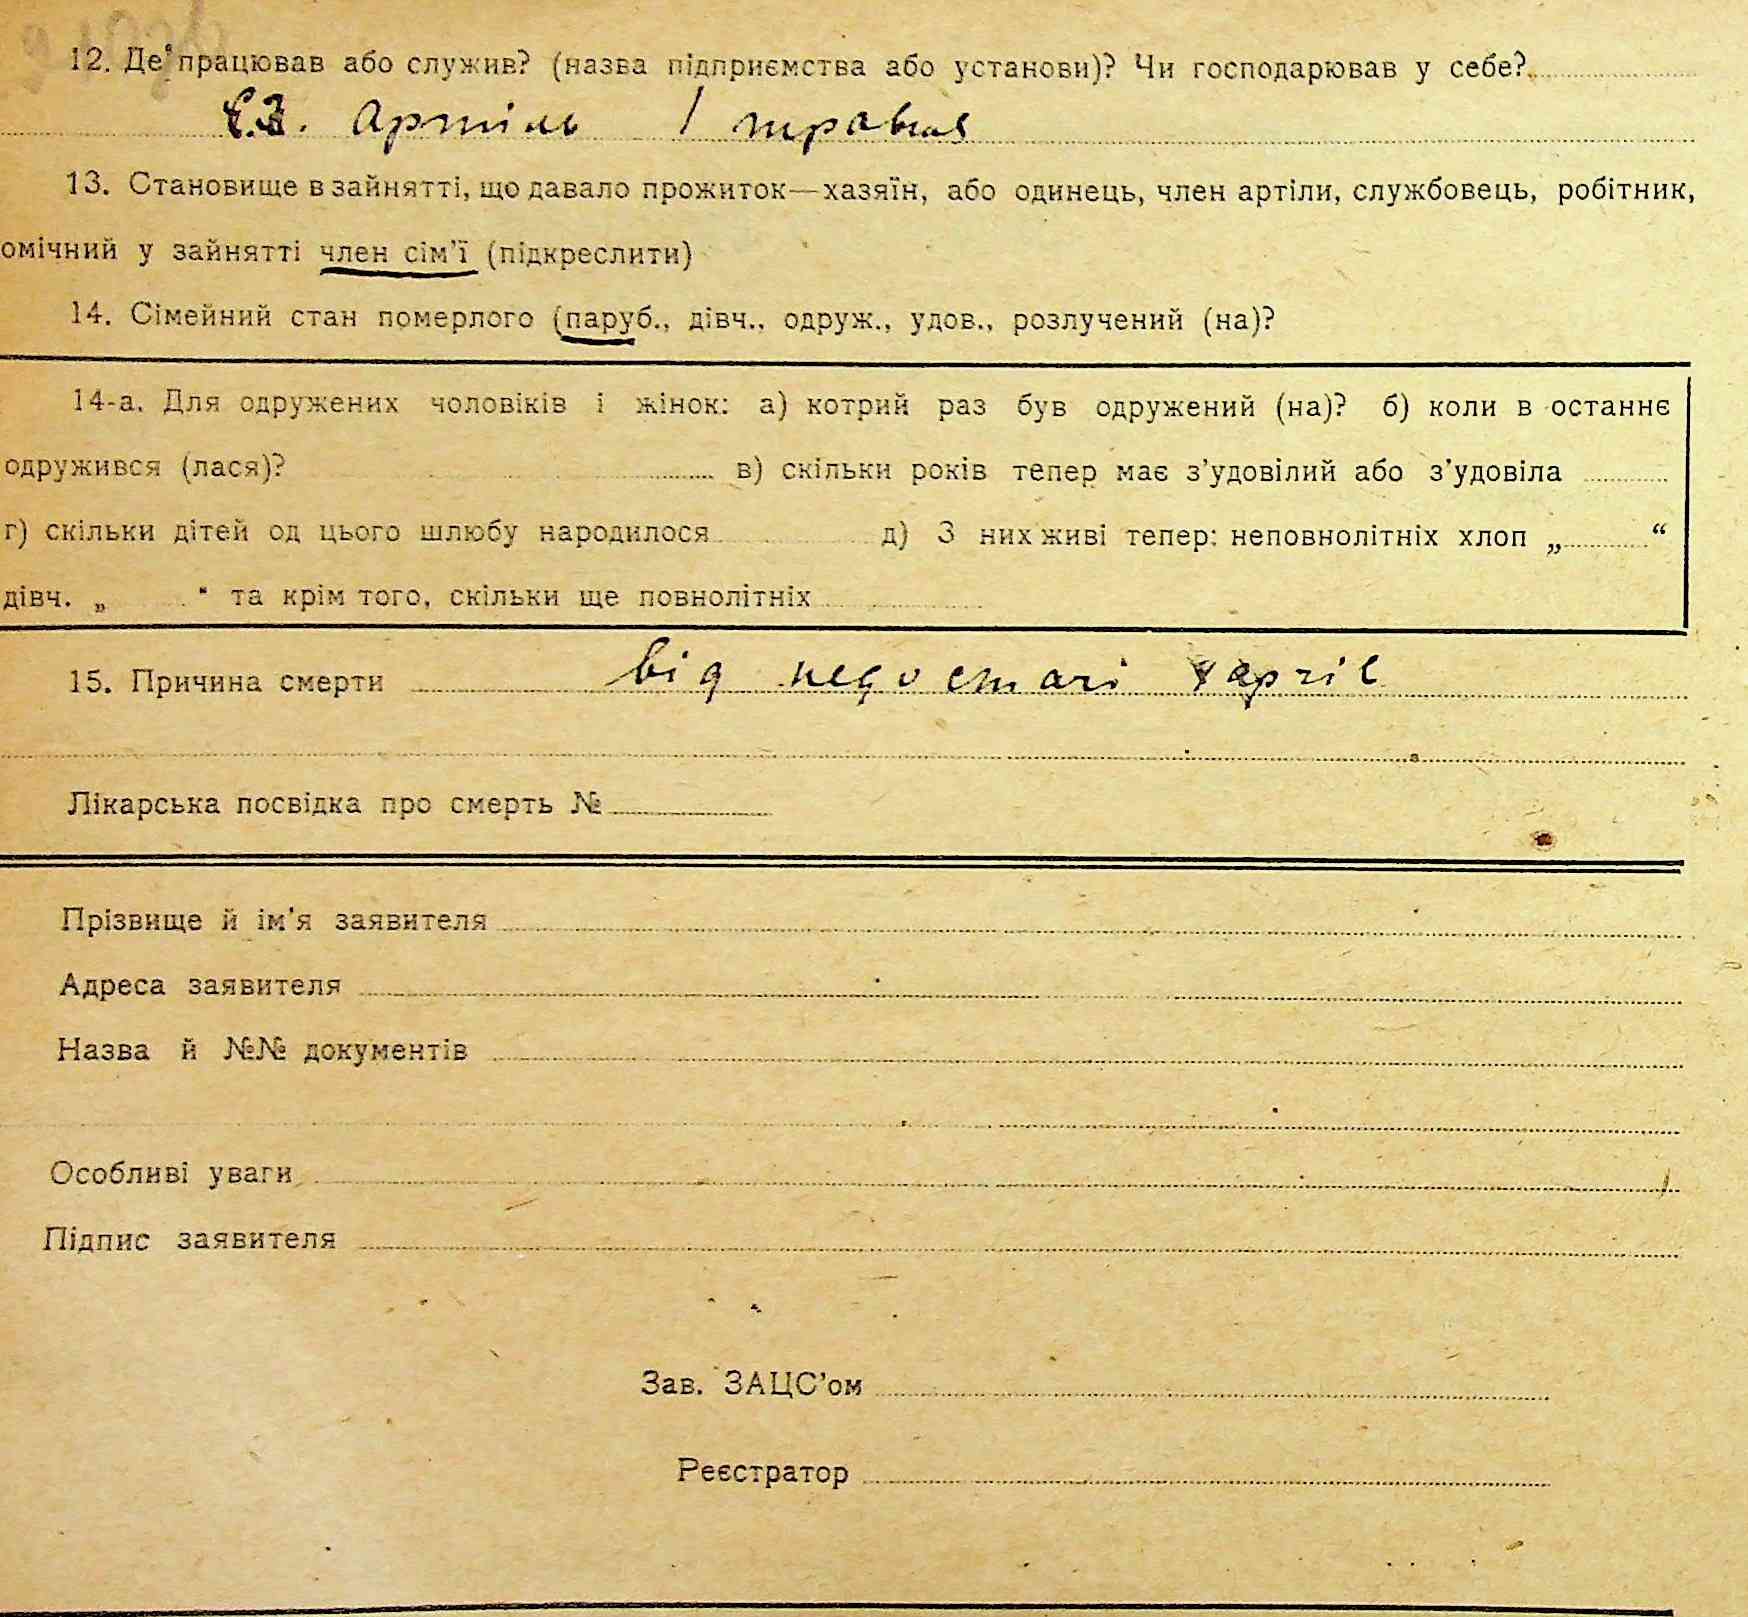 12. Де працював або служив? (назва підприємства або установи)? Чи господарював у себе?
С.Г. Артіль 1 травня
13. Становище в зайнятті, що давало прожиток—хазяїн, або одинець, член артіли, службовець, робітник,
омічний у зайнятті член сім'ї (підкреслити)
14. Сімейний стан померлого (паруб., дівч., одруж., удов., розлучений (на)?
14-а. Для одружених чоловіків і жінок: а) котрий раз був одружений (на)? б) коли в останнє
одружився (лася)? в) скільки років тепер має з'удовілий або з'удовіла
г) скільки дітей од цього шлюбу народилося д) З них живі тепер: неповнолітніх хлоп „ “
дівч. „ “ та крім того, скільки ще повнолітніх
15. Причина смерти від недостачі харчів
Лікарська посвідка про смерть №
Прізвище й ім'я заявителя
Адреса заявителя
Назва й №№ документів
Особливі уваги
Підпис заявителя
Зав. ЗАЦС'ом
Реєстратор